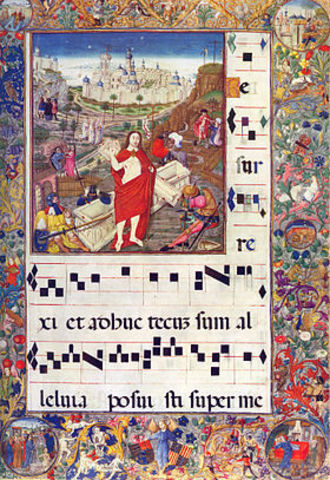 e
sur
re
xi et adhuc tecuz sum al
leluia posui sti super me